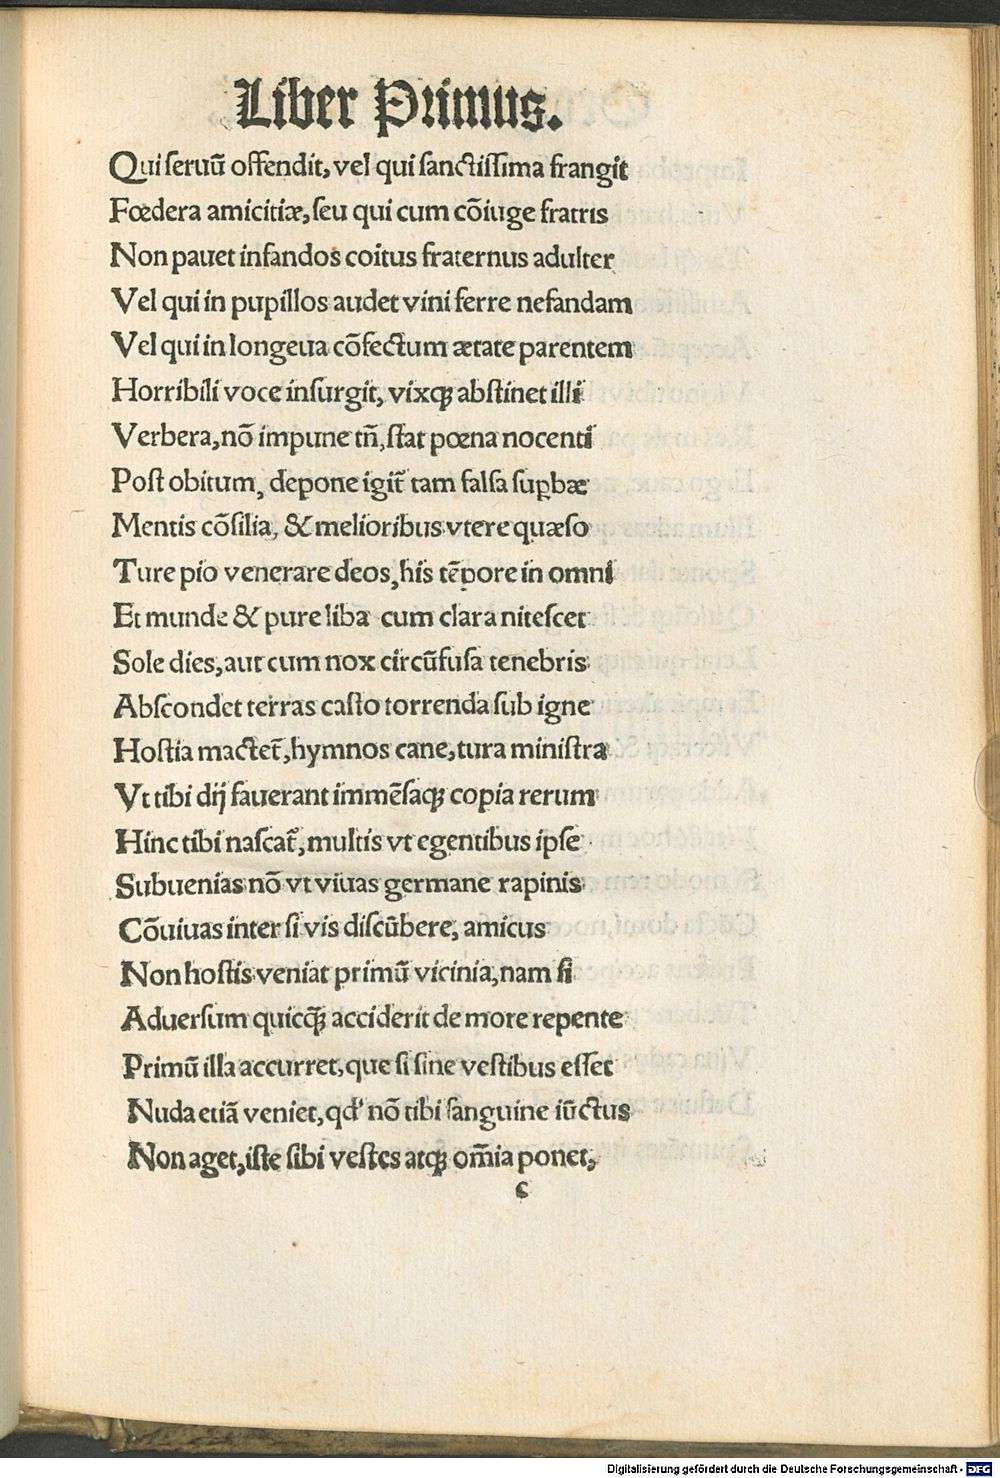 Liber Primus.
Qui ſeruū offendit, vel qui ſanctiſſima frangit
Fœdera amicitiæ, ſeu qui cum cōiuge fratris
Non pauet infandos coitus fraternus adulter
Vel qui in pupillos audet vim ferre nefandam
Vel qui in longeua cōfectum ætate parentem
Horribili voce inſurgit, vixqꝫ abſtinet illi
Verbera, nō impune tn̄, ſtat pœna nocenti
Poſt obitum, depone igit᷑ tam falſa suꝑbæ
Mentis cōſilia, & melioribus vtere quæſo
Ture pio venerare deos, his tēpore in omni
Et munde & pure liba cum clara niteſcet
Sole dies, aut cum nox circūfuſa tenebris
Abſcondet terras caſto torrenda ſub igne
Hoſtia mactet᷑, hymnos cane, tura miniſtra
Vt tibi dij fauerant immēſaqꝫ copia rerum
Hinc tibi naſcat᷑, multis vt egentibus ipſe
Subuenias nō vt viuas germane rapinis
Cōuiuas inter ſi vis diſcūbere, amicus
Non hoſtis veniat primū vicinia, nam ſi
Aduerſum quicqꝫ̄ acciderit de more repente
Primū illa accurret, que ſi ſine veſtibus eſſet
Nuda etiā veniet, qd' nō tibi ſanguine iūctus
Non aget, iſte ſibi veſtes atqꝫ om̄ia ponet,
c
Digitalisierung gefördert durch die Deutsche Forschungsgemeinschaft - DFG